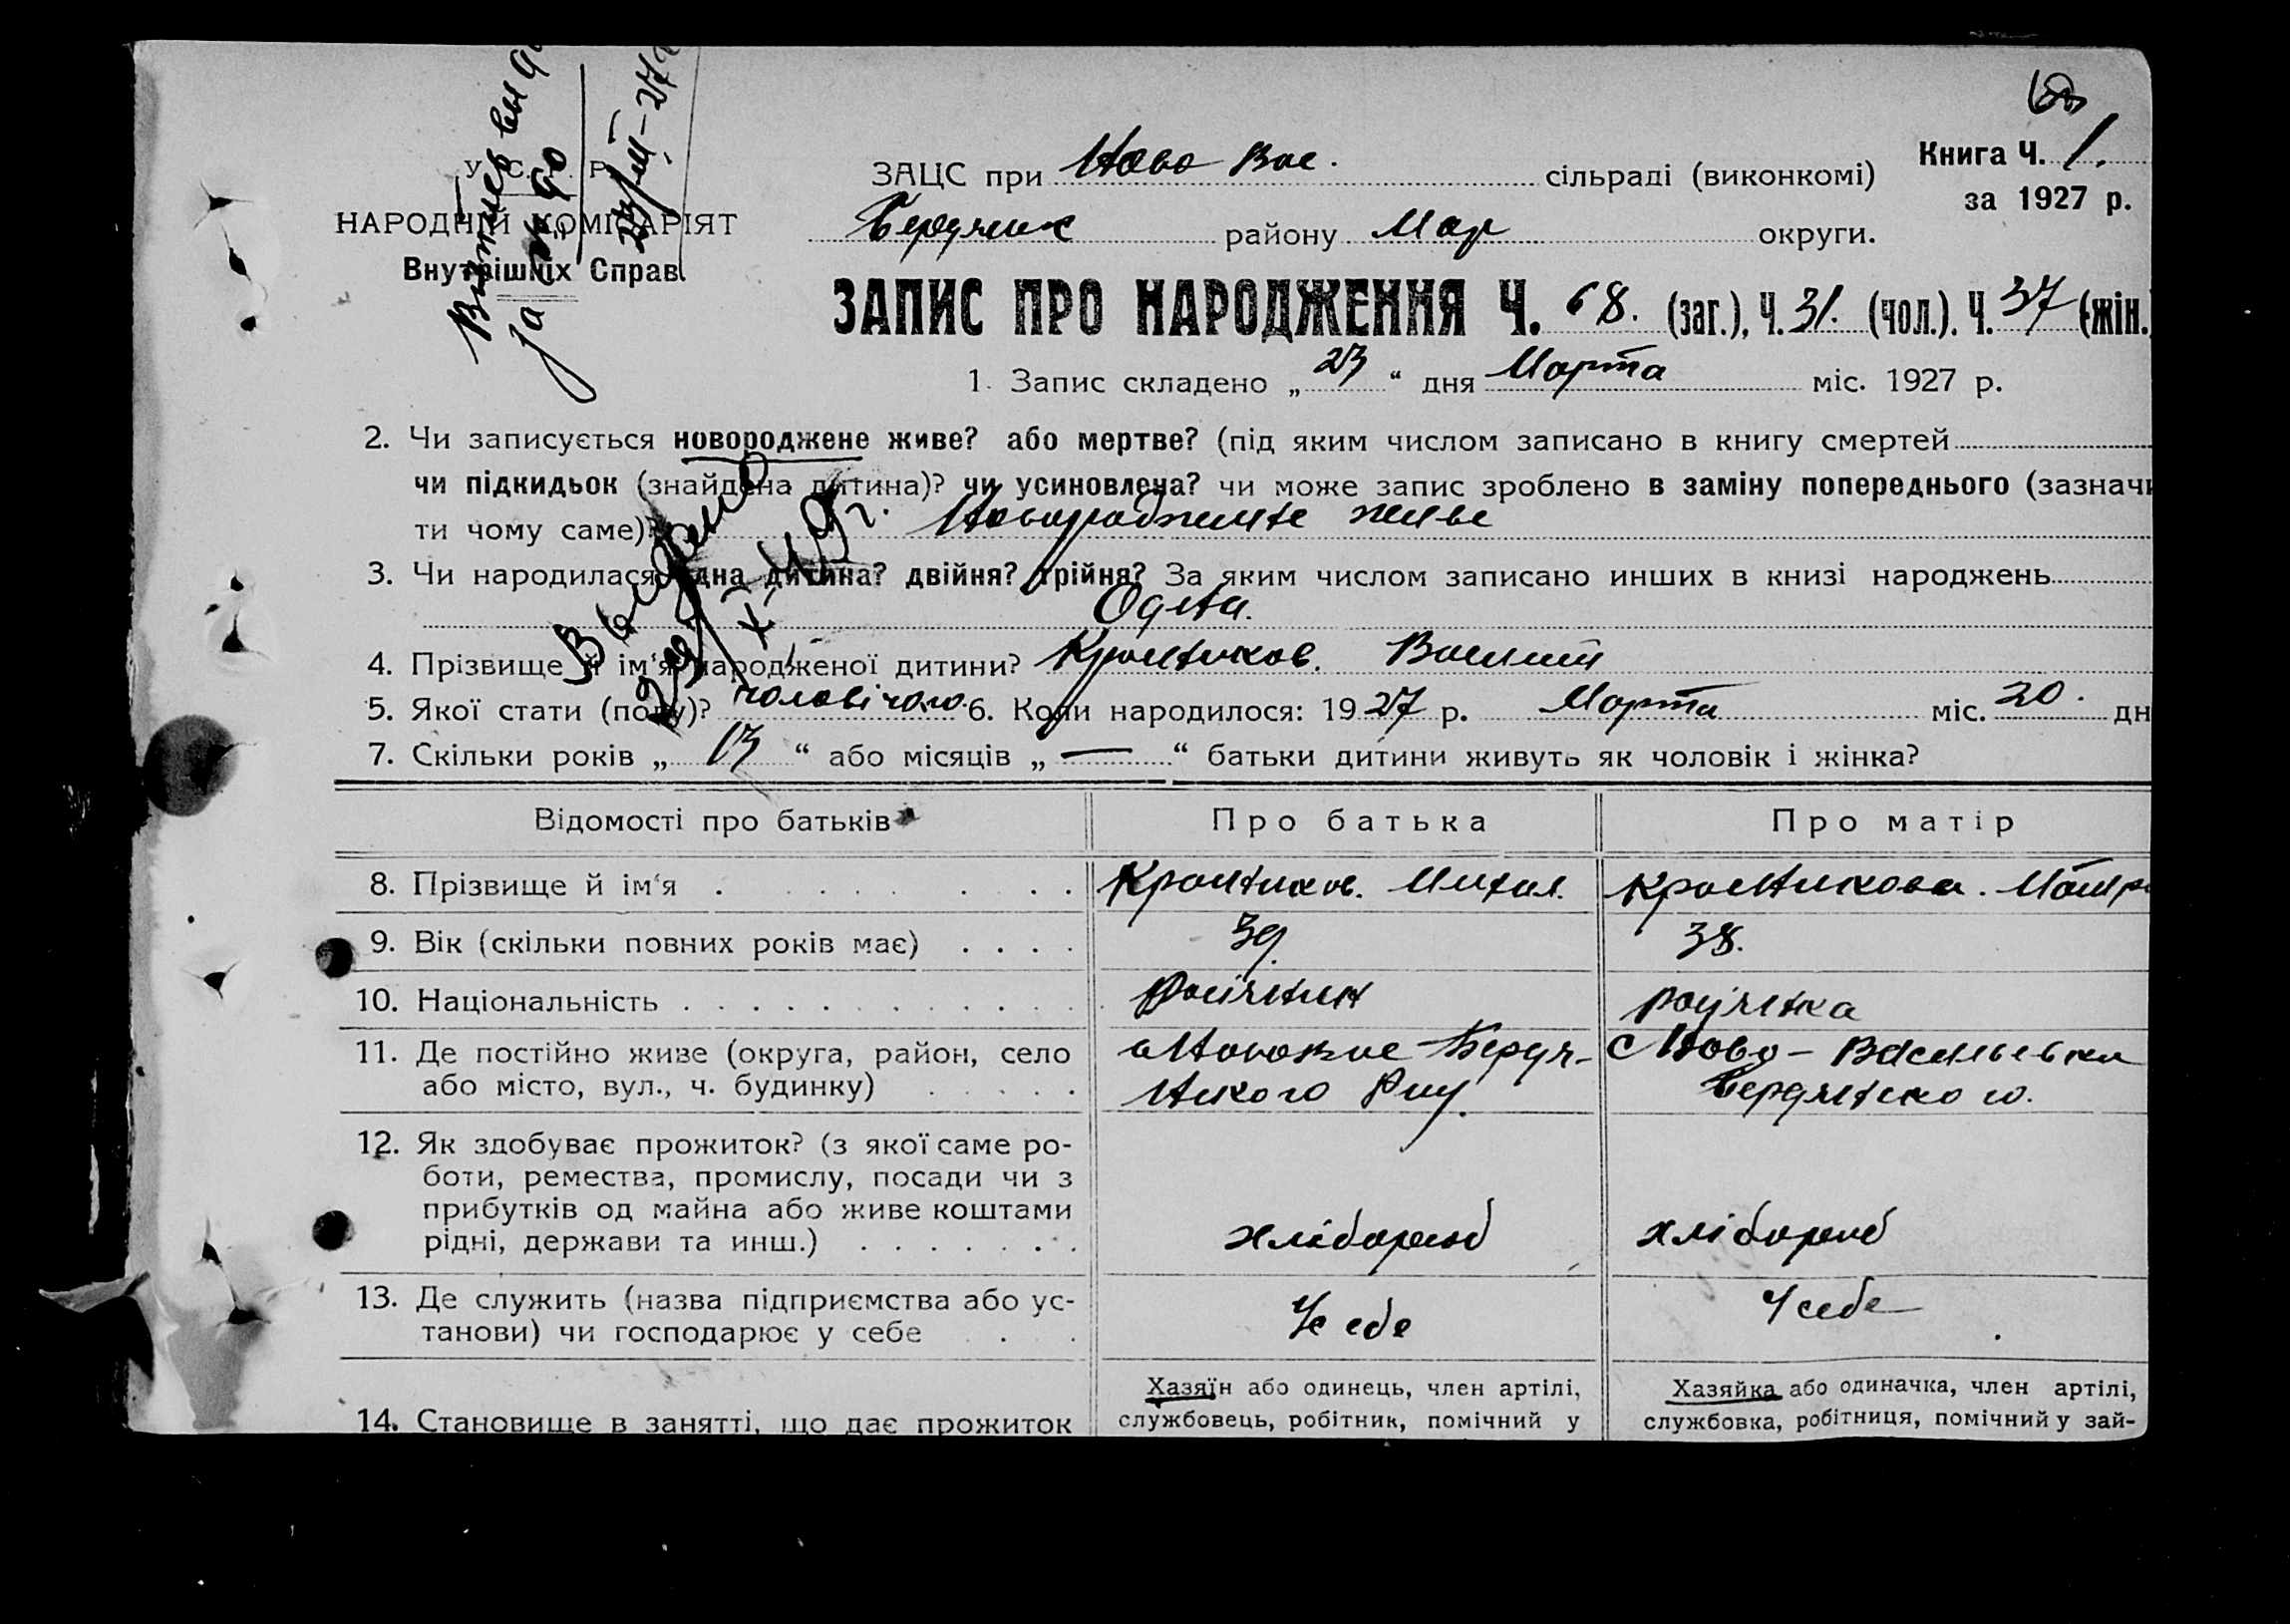 У. С. Р. Р.
НАРОДНІЙ КОМІСАРІЯТ
Внутрішніх Справ
ЗАЦС при Ново Вас. сільраді (виконкомі)
Книга Ч. 1.
за 1927 р.
Бердянск району Мар округи.
ЗАПИС ПРО НАРОДЖЕННЯ Ч. 68. (заг.), Ч. 31. (чол.). Ч. 37 (жін.)
1. Запис складено „ 23 “ дня Марта міс. 1927 р.
2. Чи записується новороджене живе? або мертве? (під яким числом записано в книгу смертей
чи підкидьок (знайдена дитина)? чи усиновлена? чи може запис зроблено в заміну попереднього (зазначи
ти чому саме)? Новороджене живе
3. Чи народилася одна дитина? двійня? трійня? За яким числом записано инших в книзі народжень
Одна.
4. Прізвище й ім‘я народженої дитини? Василий
5. Якої стати (полу)? чоловічого 6. Коли народилося: 1927 р. Марта міс. 20. дн
7. Скільки років „ 13 “ або місяців „ — “ батьки дитини живуть як чоловік і жінка?
Відомості про батьків Про батька Про матір
8. Прізвище й ім‘я
9. Вік (скільки повних років має) 39. 38.
10. Національність росіянин росіянка
11. Де постійно живе (округа, район, село с Ново-Васильевка
або місто, вул., ч. будинку) Бердянского
12. Як здобуває прожиток? (з якої саме ро-
боти, ремества, промислу, посади чи з
прибутків од майна або живе коштами
рідні, держави та инш.) хлібороб хлібороб
13. Де служить (назва підприємства або ус-
танови) чи господарює у себе У себе У себе
Хазяїн або одинець, член артілі, Хазяйка або одиначка, член артілі,
14. Становище в занятті, що дає прожиток службовець, робітник, помічний у службовка, робітниця, помічний у зай-